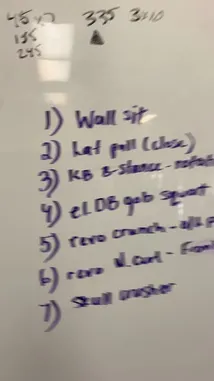 45x7 335 3x10
135
245
1) Wall sit
2) Lat pull (close)
3) KB B-Stance -
4) el DB gob squat
5) revo crunch -
6) revo N. Curl -
7) Skull crusher